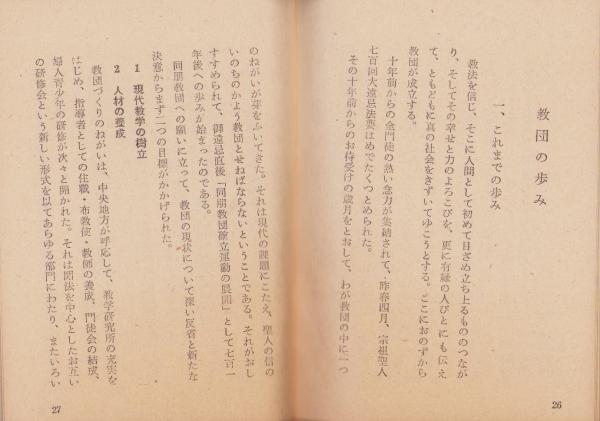 教団の歩み
一、これまでの歩み
教法を信じ、そこに人間として初めて目ざめ立ち上るもののつなが
り、そしてその幸せと力のよろこびを、更に有縁の人びとにも伝え
て、ともどもに真の社会をきずいてゆこうとする。ここにおのずから
教団が成立する。
十年前からの全門徒の熱い念力が集結されて、昨春四月、宗祖聖人
七百回大遠忌法要はめでたくつとめられた。
その十年前からのお待受けの歳月をとおして、わが教団の中に一つ
26
のねがいが芽をふいてきた。それは現代の課題にこたえ、聖人の信の
いのちのかよう教団とせねばならないということである。それがおし
すすめられて、御遠忌直後「同朋教団確立運動の展開」として七百一
年後への歩みが始まったのである。
同朋教団への願いに立って、教団の現状について深い反省と新たな
決意からまず二つの目標がかかげられた。
1 現代教学の樹立
2 人材の養成
教団づくりのねがいは、中央地方が呼応して、教学研究所の充実を
はじめ、指導者としての住職・布教使・教師の養成、門徒会の結成、
婦人青少年の研修が次々と開かれた。それは聞法を中心としたお互い
の研修会という新しい形式を以てあらゆる部門にわたり、またいろい
27